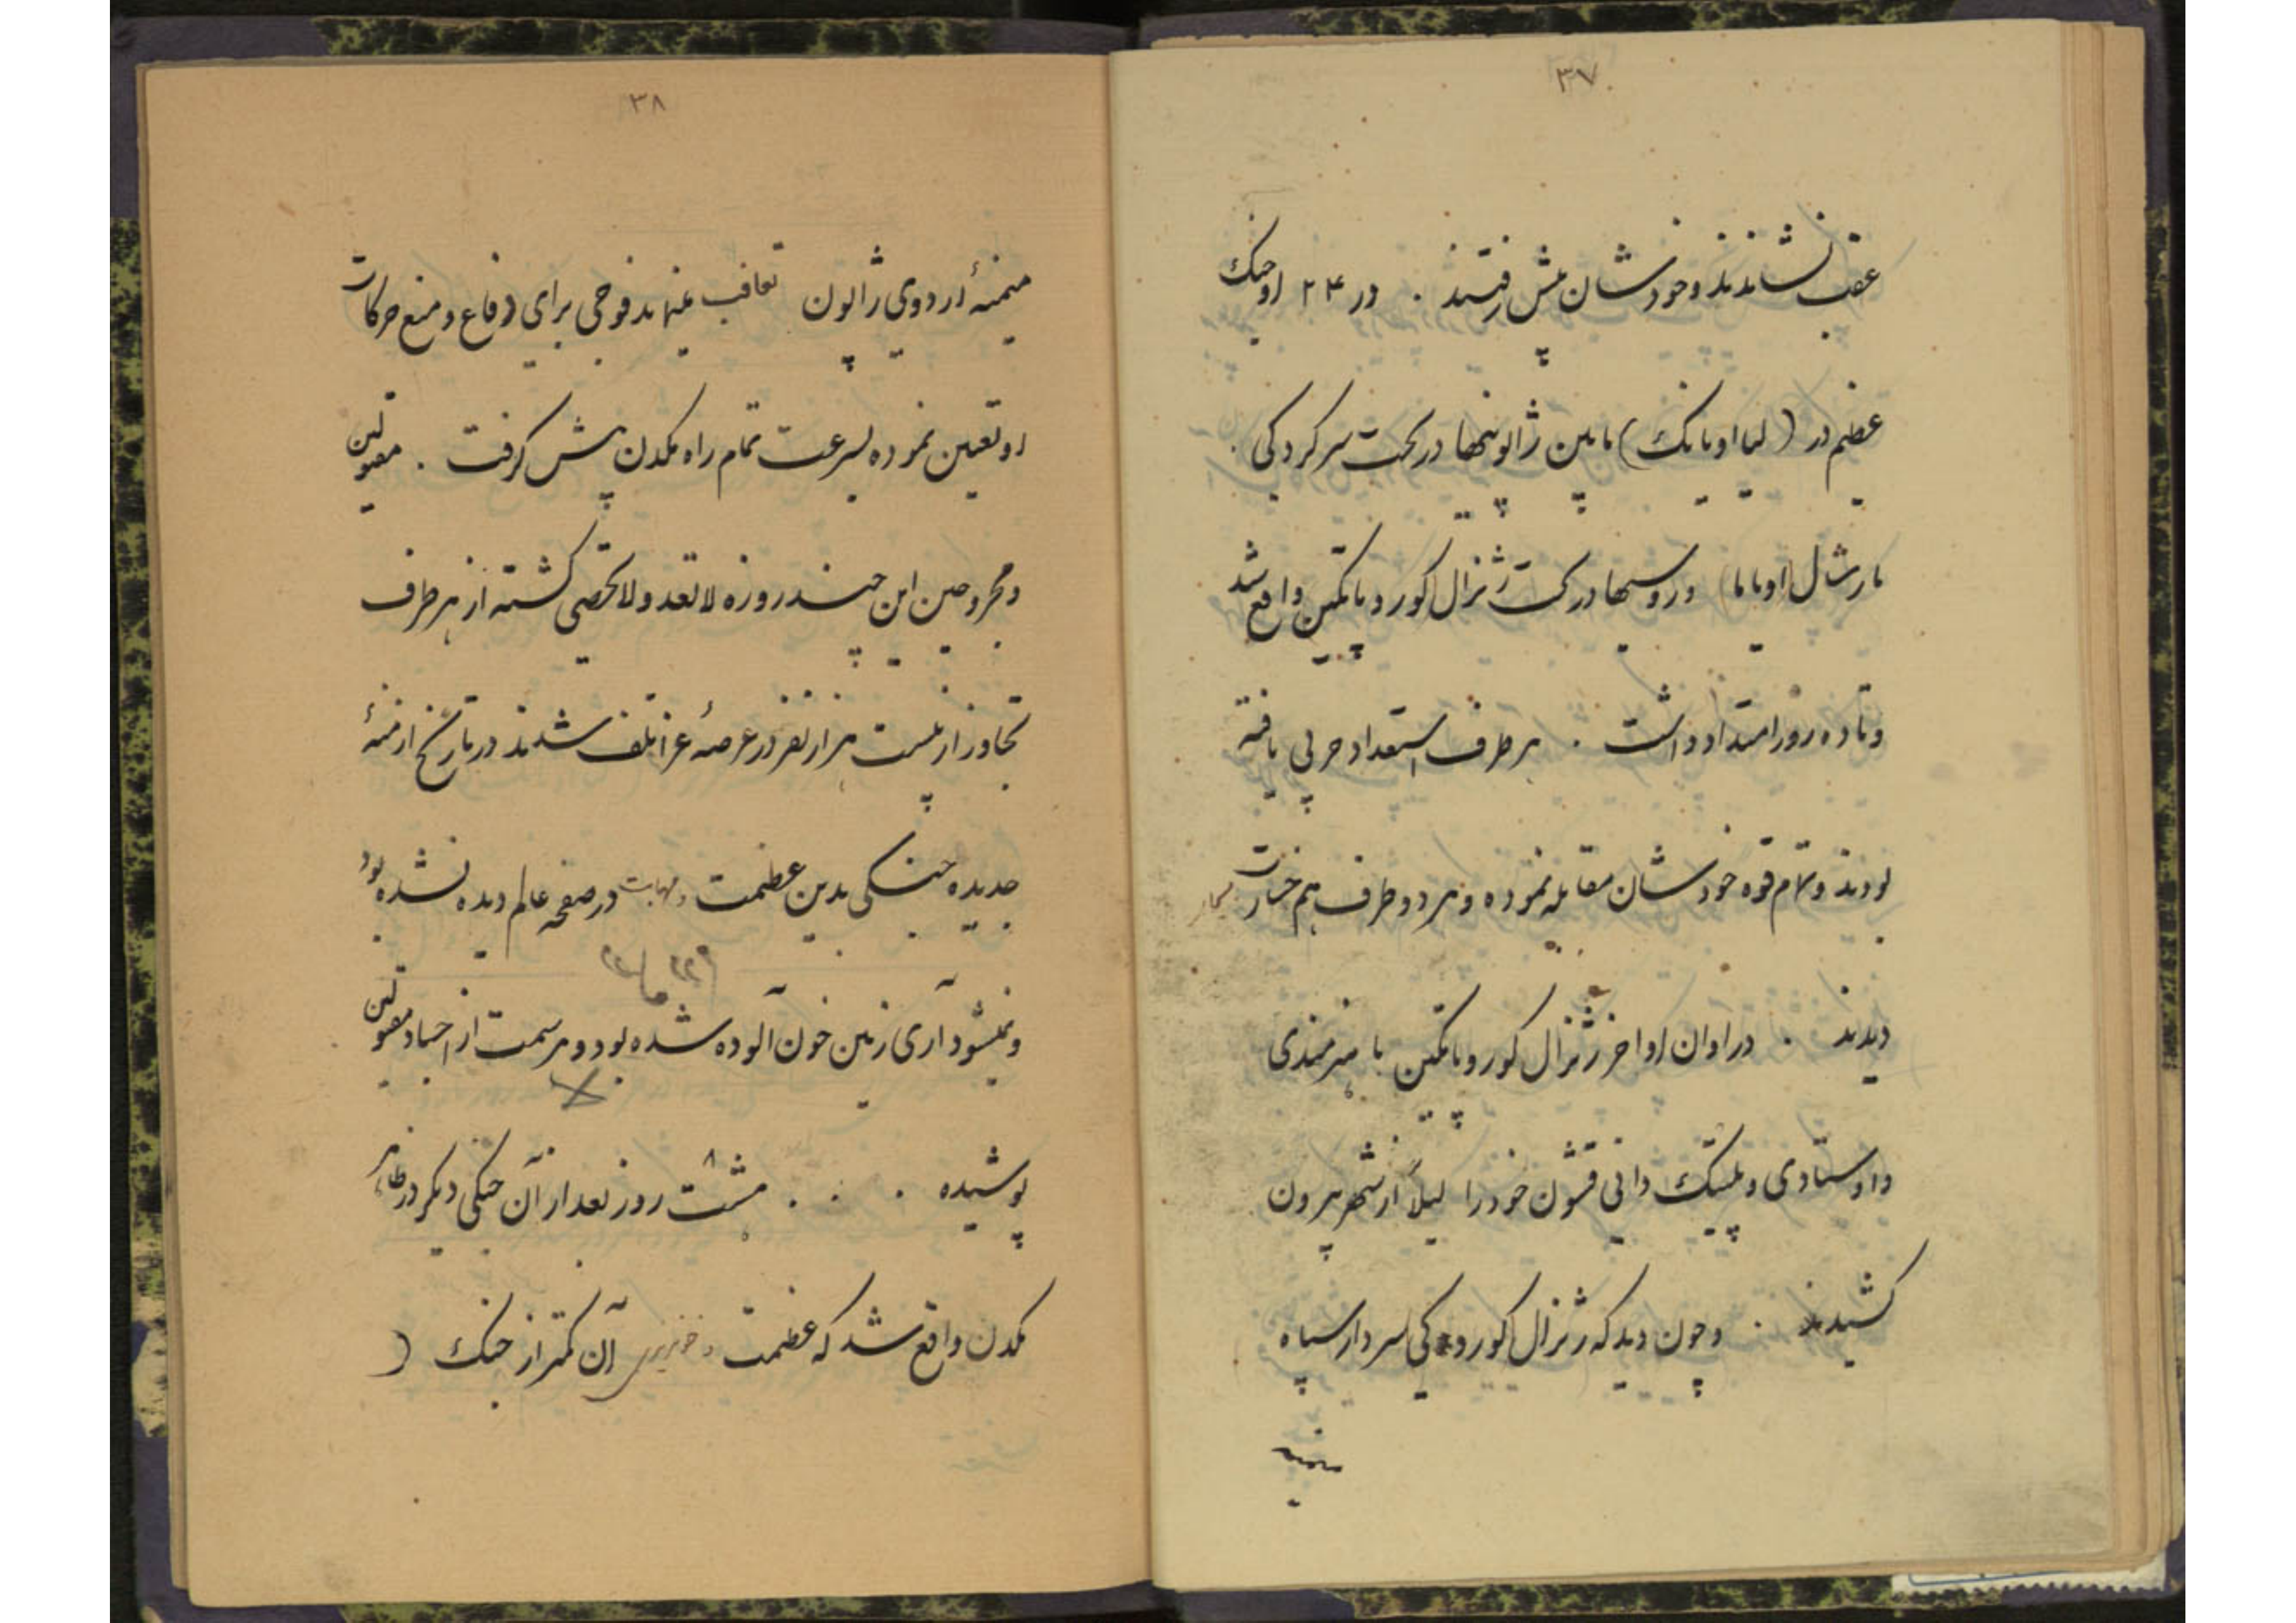 ۳۷
عقب نشاندند و خودشان پیش رفتند . در ۲۴ اوت جنگ
عظیم در (لیااویانک) مابین ژاپونیها در تحت سرکردگی .
مارشال (اویاما) و روسیها در تحت ژنرال کوروپاتکین واقع شد
و تا ده روز امتداد داشت . هر طرف استعداد حربی یافته
بودند و تمام قوه خودشان مقابله نموده و هر دو طرف هم خسارت
دیدند . در اوان اواخر ژنرال کوروپاتکین با هنرمندی
و اوستادی و پلتیک دانی قشون خود را لیلاً از شهر بیرون
کشیدند . و چون دید که ژنرال کوروکی سردار سپاه
میمنه
۳۸
میمنهٔ اردوی ژاپون تعاقب مینماید فوجی برای دفاع و منع حرکات
او تعیین نموده بسرعت تمام راه مکدن پیش گرفت . مقتولین
و مجروحین این چند روزه لاتعد و لاتحصی گشته از هر طرف
تجاوز از بیست هزار نفر در عرصهٔ غزا تلف شدند در تاریخ ازمنهٔ
جدیده جنگی بدین عظمت و مهابت در صفحه عالم دیده نشده بود
و نمیشود آری زمین خون آلوده شده بود و هر سمت از اجساد مقتولین
پوشیده . . . هشت ۸ روز بعد از آن جنگی دیگر در ظاهر
مکدن واقع شد که عظمت و خونریزی آن کمتر از جنگ (